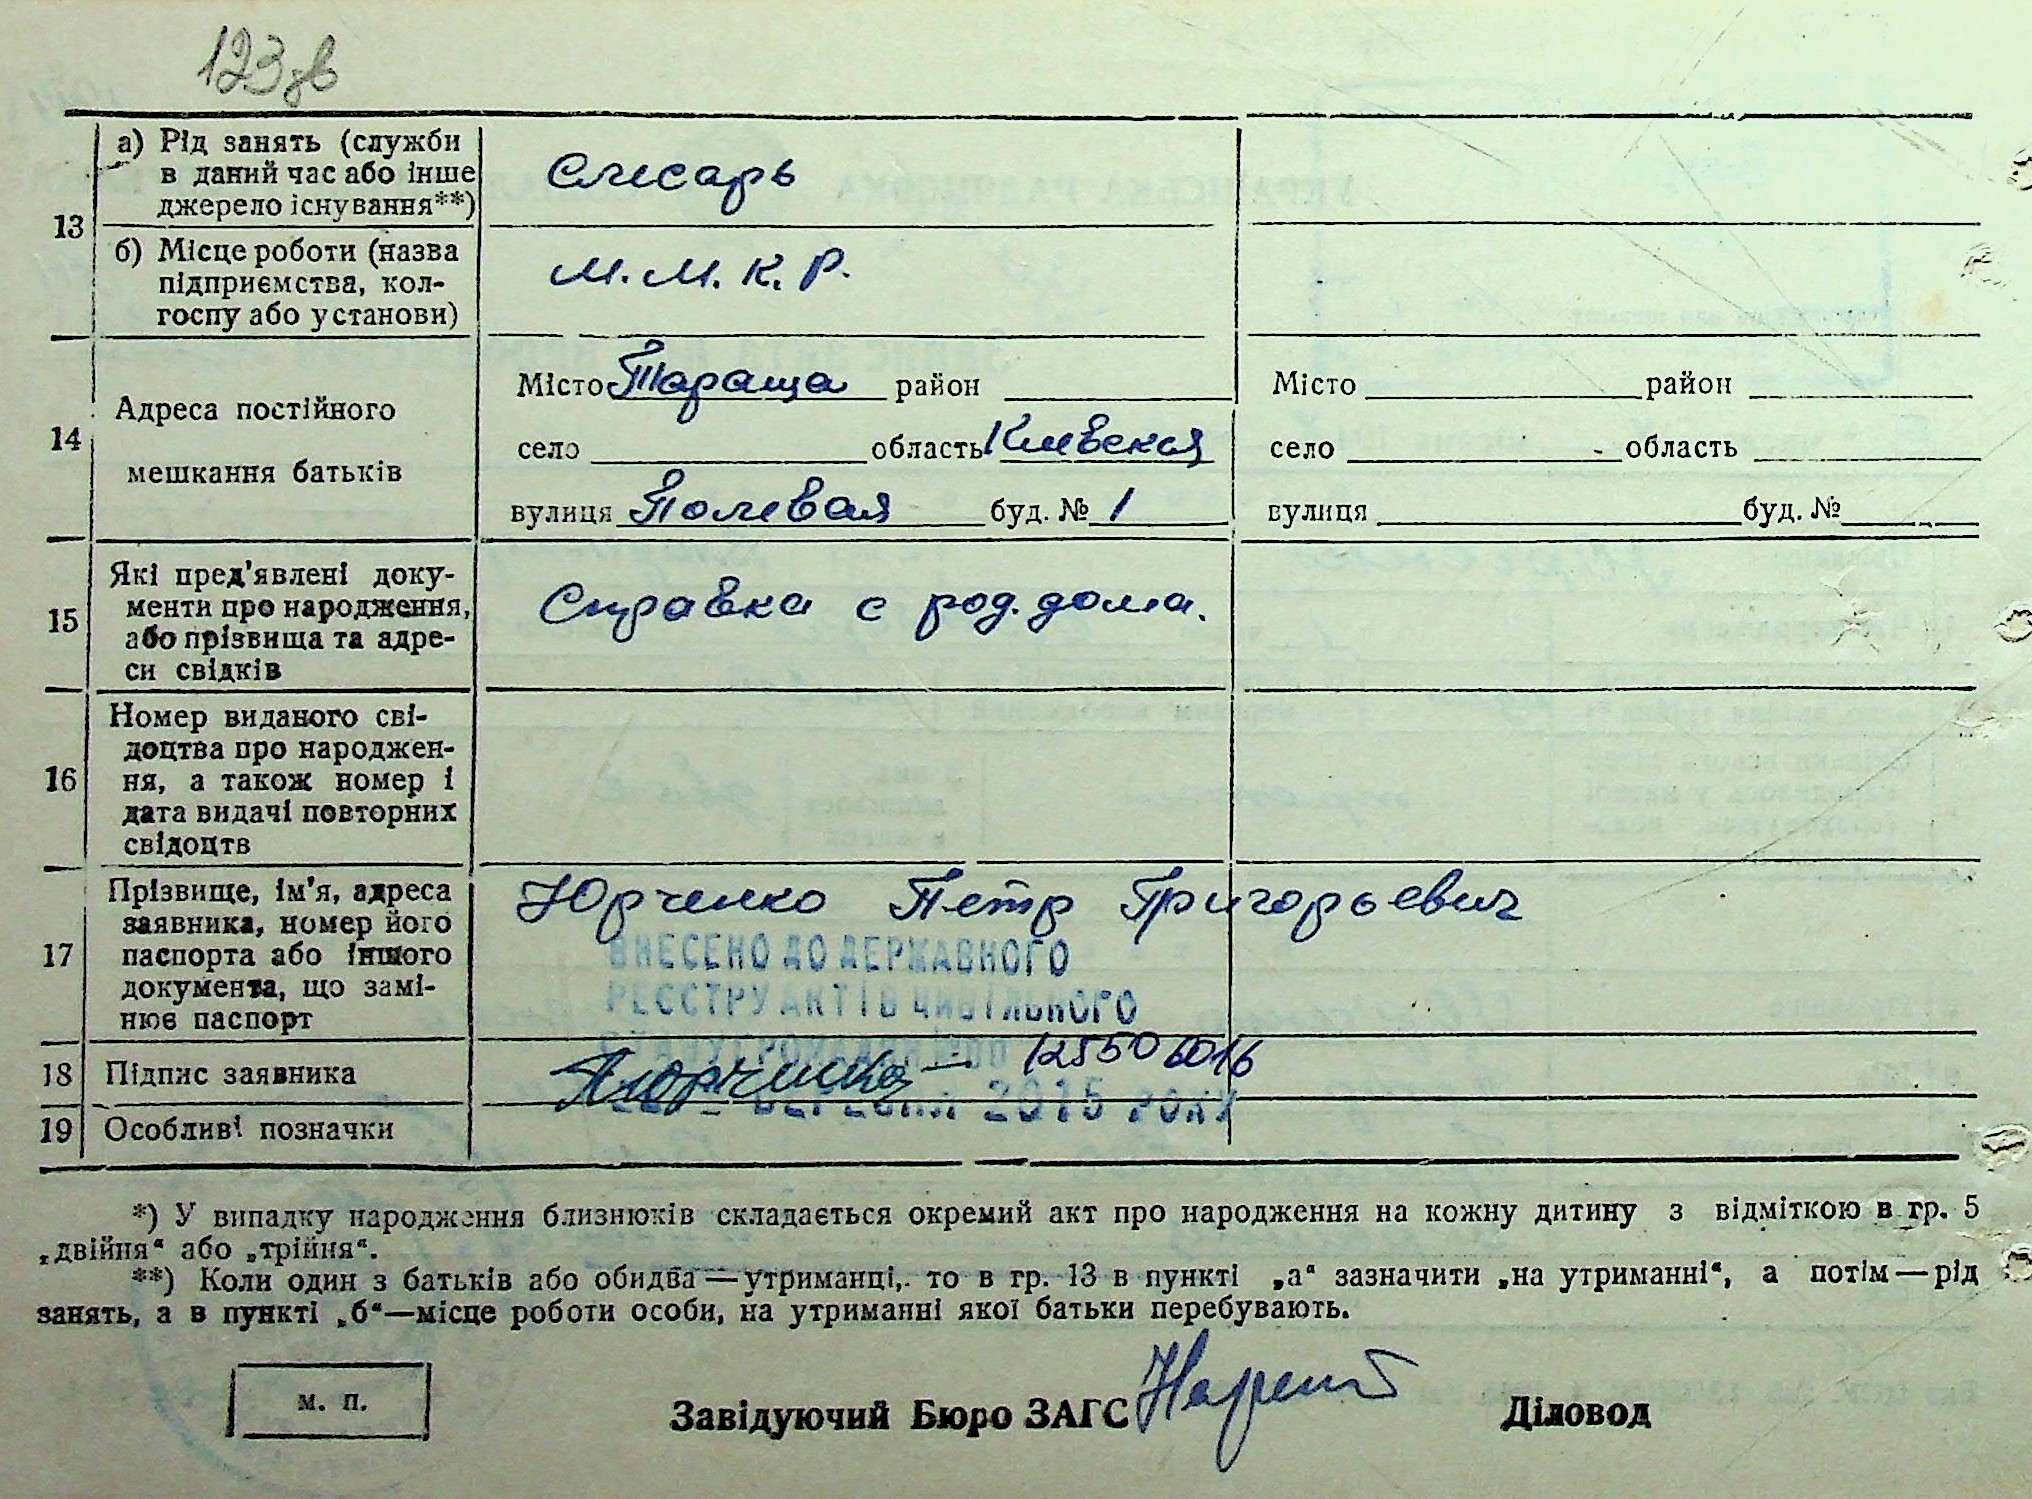 123 зв
13
а) Рід занять (служби
в даний час або інше
джерело існування**)
Слесарь
б) Місце роботи (назва
підприємства, кол-
госпу або установи)
М.М.К.Р.
14
Адреса постійного
мешкання батьків
Місто Тараща район
село область Киевская
вулиця Полевая буд. № 1
Місто район
село область
вулиця буд. №
15
Які пред'явлені доку-
менти про народження,
або прізвища та адре-
си свідків
Справка с род. дома.
16
Номер виданого сві-
доцтва про народжен-
ня, а також номер і
дата видачі повторних
свідоцтв
17
Прізвище, ім'я, адреса
заявника, номер його
паспорта або іншого
документа, що замі-
нює паспорт
Юрченко Петр Григорьевич
ВНЕСЕНО ДО ДЕРЖАВНОГО
РЕЄСТРУ АКТІВ ЦИВІЛЬНОГО
СТАНУ ГРОМАДЯН
18 Підпис заявника
12550 6016
2015 РОКУ
19 Особливі позначки
*) У випадку народження близнюків складається окремий акт про народження на кожну дитину з відміткою в гр. 5
„двійня“ або „трійня“.
**) Коли один з батьків або обидва — утриманці, то в гр. 13 в пункті „а“ зазначити „на утриманні“, а потім — рід
занять, а в пункті „б“ — місце роботи особи, на утриманні якої батьки перебувають.
м. п.
Завідуючий Бюро ЗАГС
Діловод